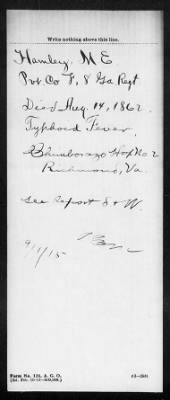 Write nothing above this line.
Hamley, M E
Pvt Co F, 8 Ga Regt
Died Aug. 14, 1862.
Typhoid Fever.
Chimborazo Hosp No 2
Richmond, Va.
See Report S & W.
9/1/15
Form No. 124, A. G. O.